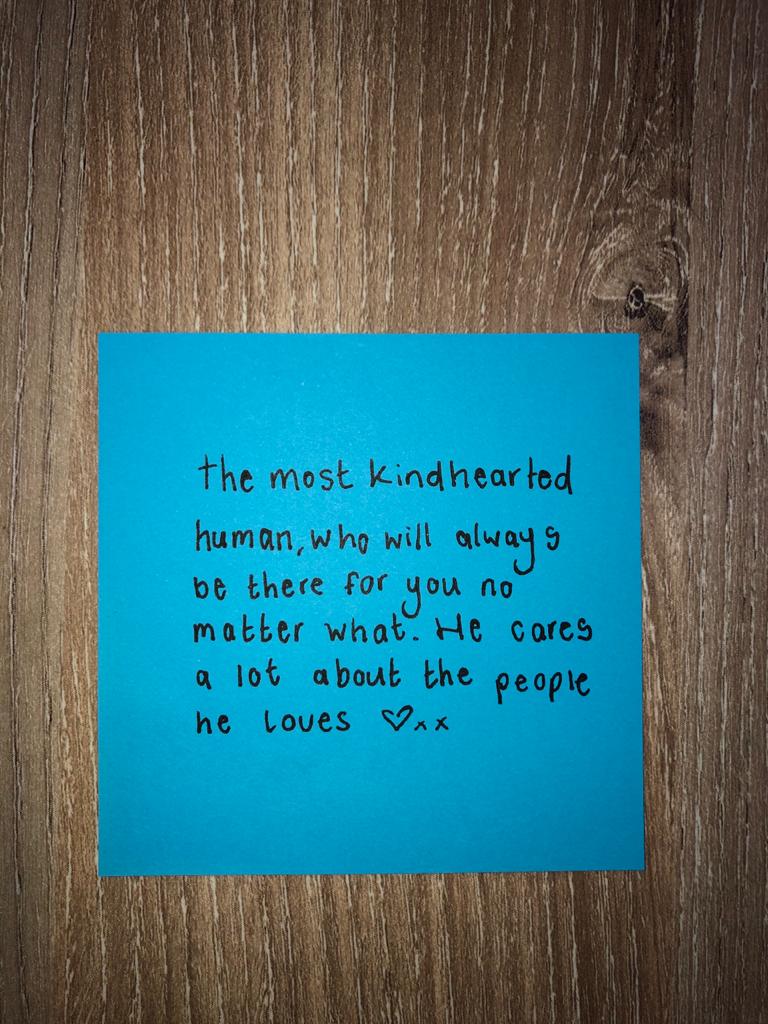 the most kindhearted
human, who will always
be there for you no
matter what. He cares
a lot about the people
he loves ♡xx